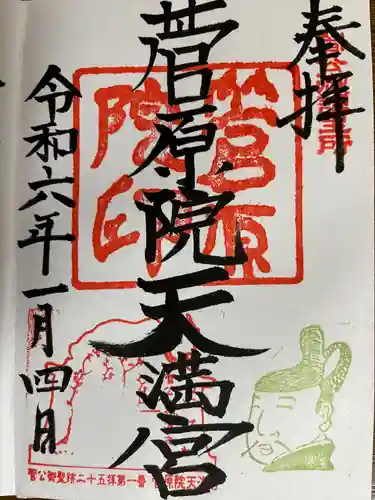 奉拝
菅原院天満宮
令和六年一月四日
菅原院印
菅公御聖蹟二十五拝第一番 菅原院天満宮